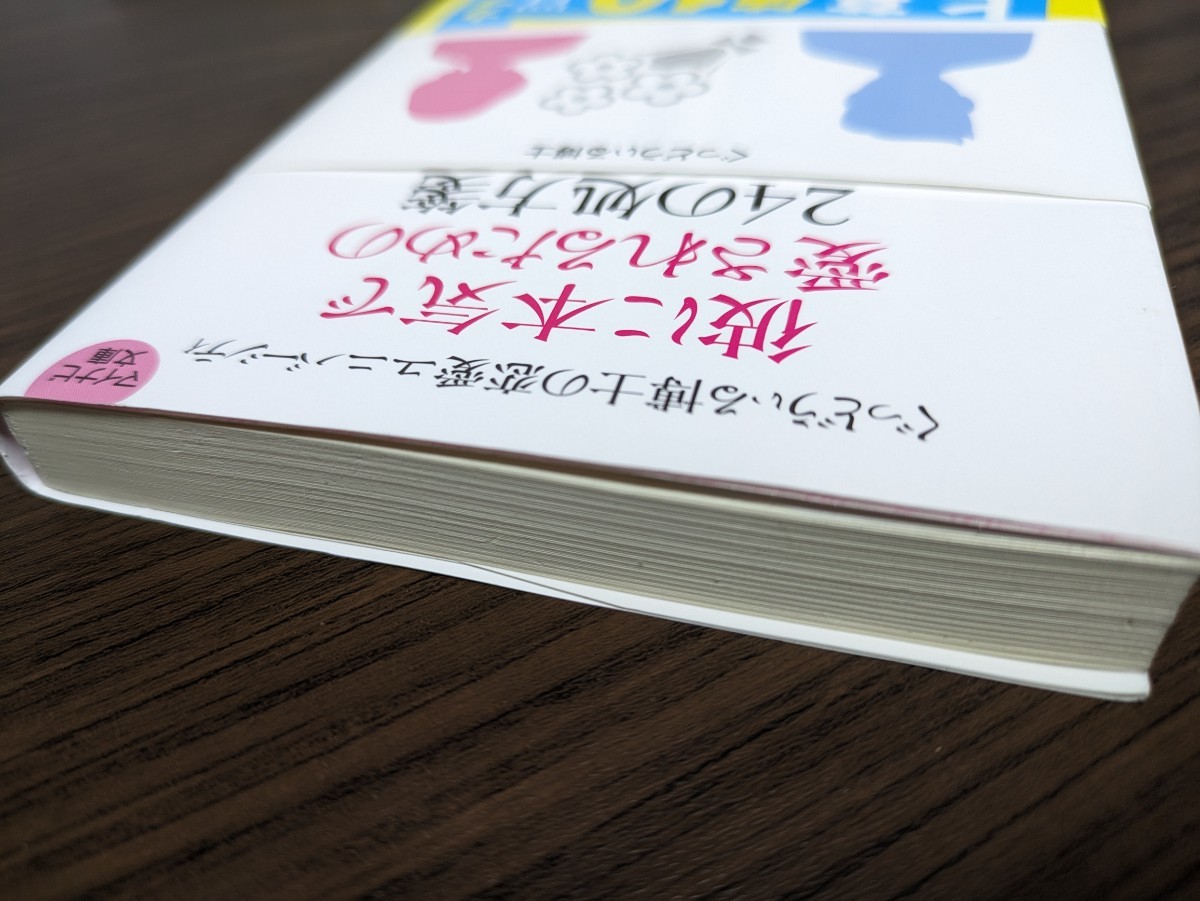 ぐっどうぃる博士の恋愛ユニバーシティ
彼に本気で
愛されるための
24の処方箋
ぐっどうぃる博士
マイナビ
文庫